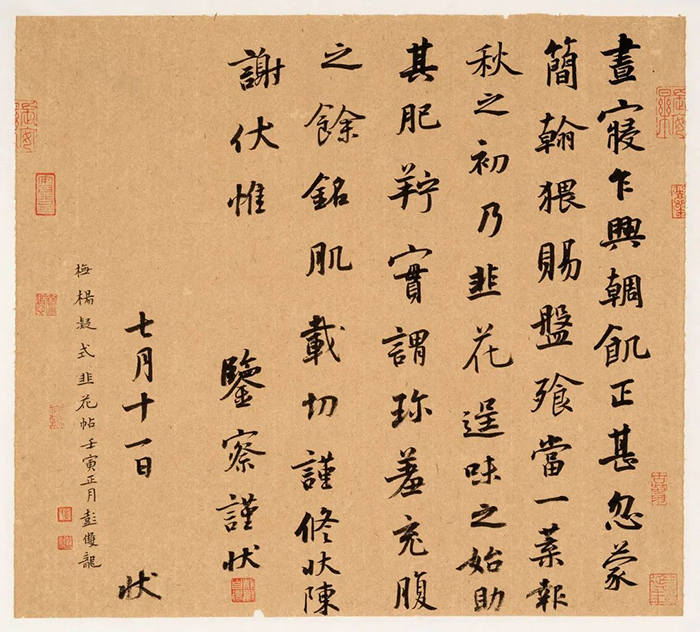 晝寢乍興輖飢正甚忽蒙
簡翰猥賜盤飧當一葉報
秋之初乃韭花逞味之始助
其肥羜實謂珍羞充腹
之餘銘肌載切謹修狀陳
謝伏惟 鑒察謹狀
七月十一日 狀
楊凝式韭花帖壬寅正月彭雙龍